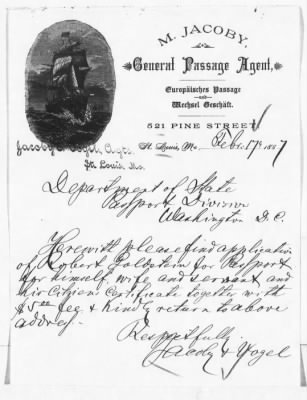 M. JACOBY,
General Passage Agent,
Europäisches Passage
und
Wechsel Geschäft.
521 PINE STREET
Jacoby & Vogel, Agts.
St. Louis, Mo.
St. Louis, Mo., Febr. 17th 1887
Department of State
Passport Division
Washington D. C.
Herewith please find application
of Robert Goldstein for Passport
for himself, wife and servant and
his Citizens Certificate together with
fee & kindly return to above
address.
Respectfully
Jacoby & Vogel